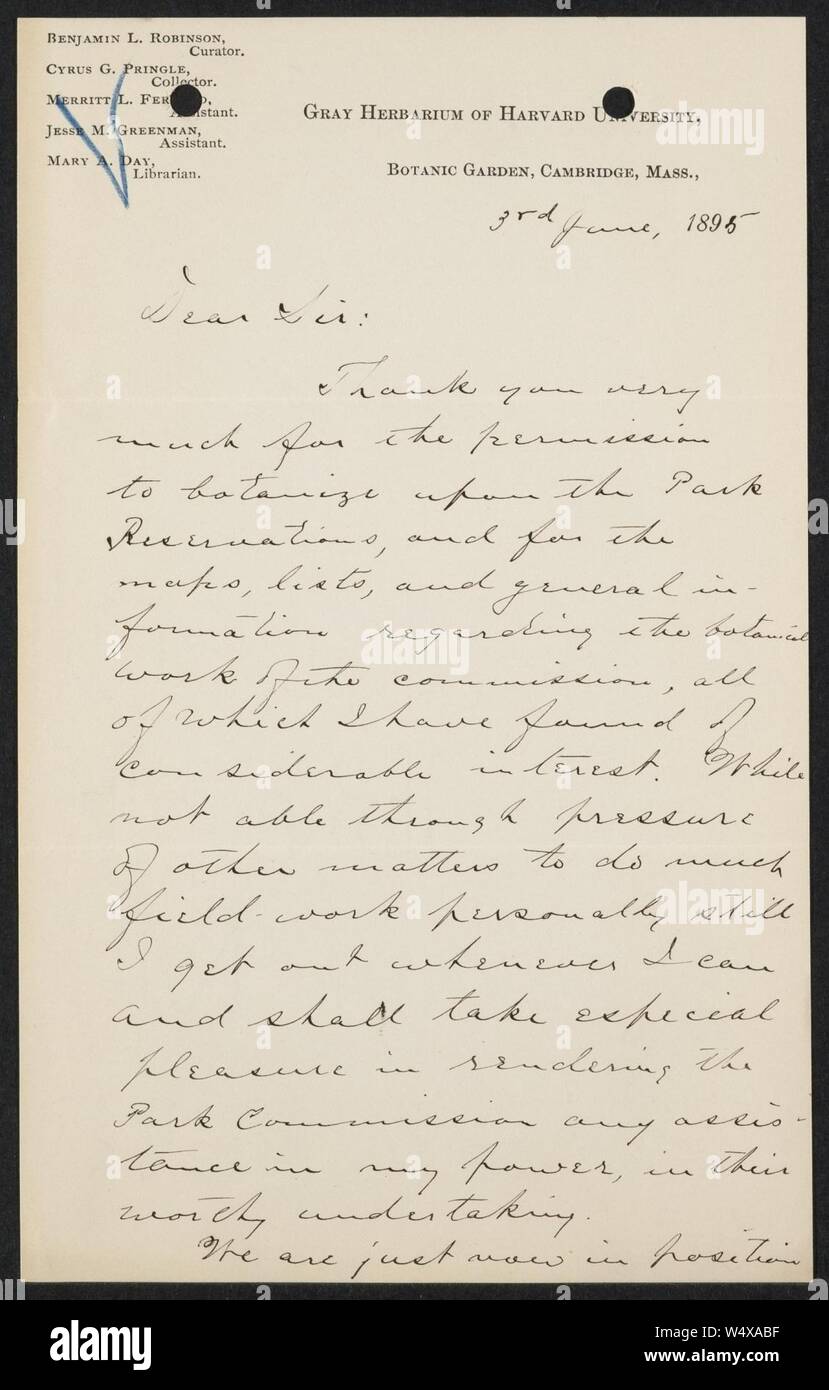 BENJAMIN L. ROBINSON,
Curator.
CYRUS G. PRINGLE,
Collector.
MERRITT L.
JESSE M. GREENMAN,
Assistant.
MARY A. DAY,
Librarian.
GRAY HERBARIUM OF HARVARD
BOTANIC GARDEN, CAMBRIDGE, MASS.,
3rd June, 1895
Dear Sir:
Thank you very
much for the permission
to botanize upon the Park
Reservations, and for the
maps, lists, and general in-
formation regarding the botanical
work of the commission, all
of which I have found of
considerable interest. While
not able through pressure
of other matters to do much
field-work personally still
I get out whenever I can
and shall take especial
pleasure in rendering the
Park Commission any assis-
tance in my power, in their
worthy undertaking.
We are just now in position
alamy
Image ID: W4XABF
www.alamy.com